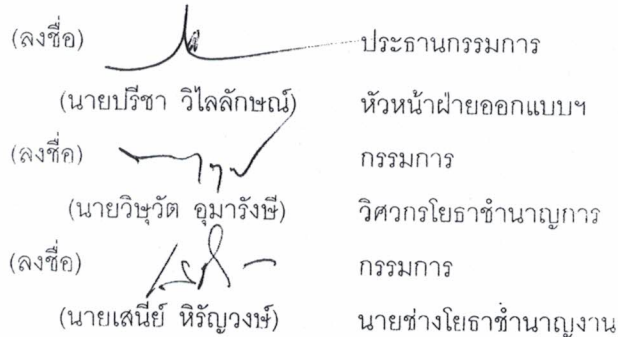 (ลงชื่อ) ประธานกรรมการ
(นายปรีชา วิไลลักษณ์) หัวหน้าฝ่ายออกแบบฯ
(ลงชื่อ) กรรมการ
(นายวิษุวัต อุมารังษี) วิศวกรโยธาชำนาญการ
(ลงชื่อ) กรรมการ
(นายเสนีย์ หิรัญวงษ์) นายช่างโยธาชำนาญงาน